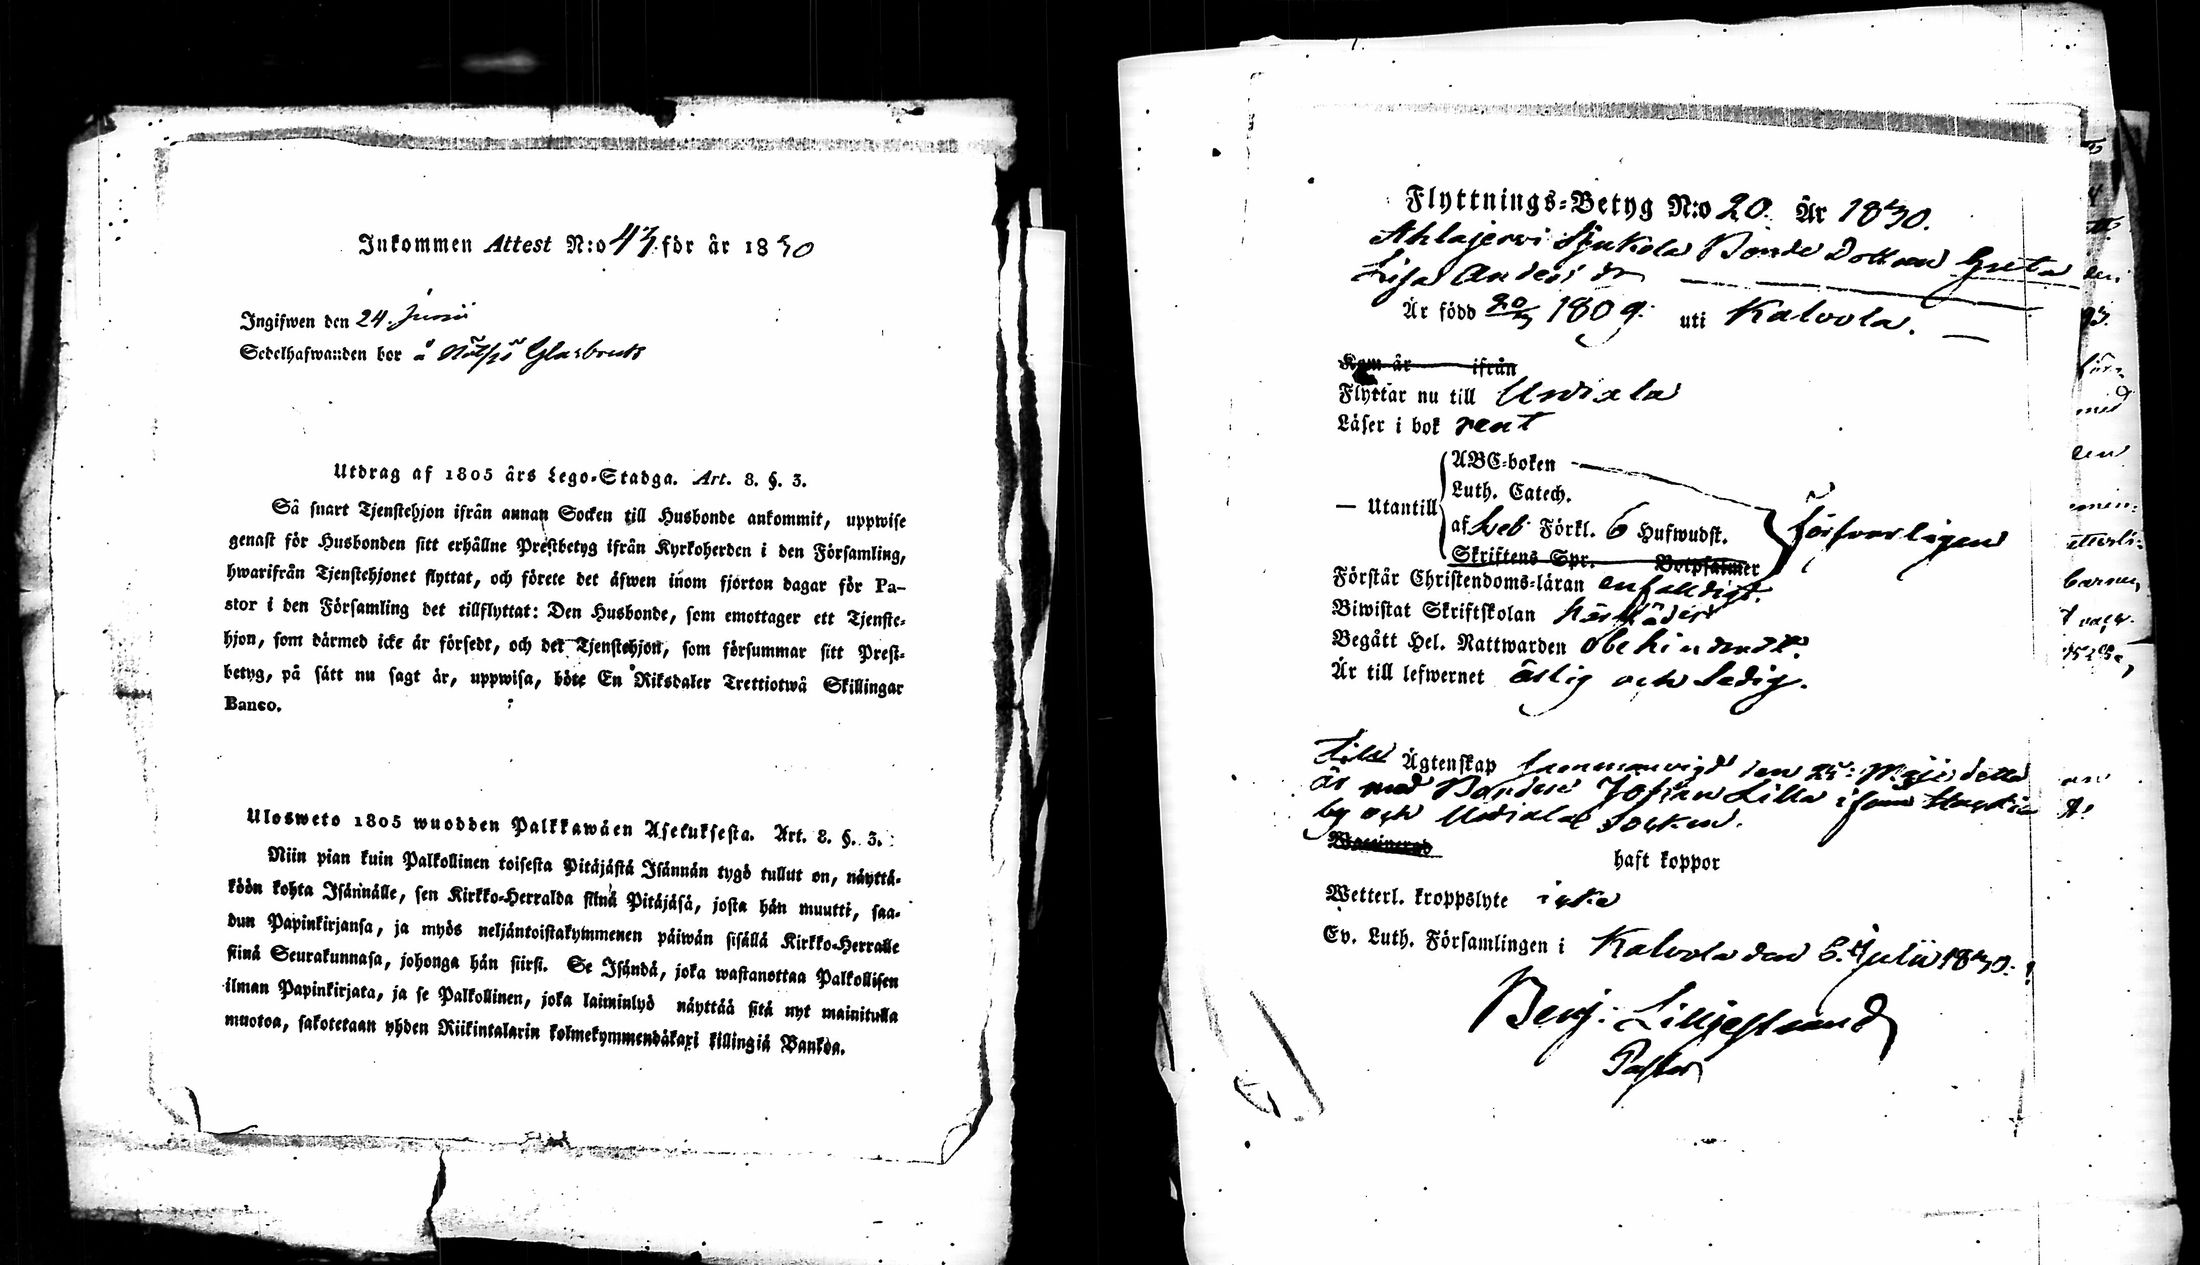 Inkommen Attest N:o 43 för år 1830
Ingifwen den 24. Junii
Sedelhafwanden bor å Nötsjö Glasbruk
Utdrag af 1805 års Lego-Stadga. Art. 8. §. 3.
Så snart Tjenstehjon ifrån annan Socken till Husbonde ankommit, uppwise
genast för Husbonden sitt erhållne Prestbetyg ifrån Kyrkoherden i den Församling,
hwarifrån Tjenstehjonet flyttat, och förete det äfwen inom fjorton dagar för Pa-
stor i den Församling det tillflyttat: Den Husbonde, som emottager ett Tjenste-
hjon, som därmed icke är försedt, och det Tjenstehjon, som försummar sitt Prest-
betyg, på sätt nu sagt är, uppwisa, böte En Riksdaler Trettiotwå Skillingar
Banco.
Ulosweto 1805 wuodden Palkkawäen Asetuksesta. Art. 8. §. 3.
Niin pian kuin Palkollinen toisesta Pitäjästä Isännän tygö tullut on, näyttä-
köön kohta Isännälle, sen Kirkko-Herralda siinä Pitäjäsä, josta hän muutti, saa-
dun Papinkirjansa, ja myös neljäntoistakymmenen päiwän sisällä Kirkko-Herralle
siinä Seurakunnasa, johonga hän siirsi. Se Isändä, joka wastanottaa Palkollisen
ilman Papinkirjata, ja se Palkollinen, joka laiminlyö näyttää sitä nyt mainitulla
muotoa, sakotetaan yhden Riikintalarin kolmekymmendäkaxi killingiä Bankoa.
Flyttnings-Betyg N:o 20. År 1830.
Ahlajervi Sjukola Bonde Dottren Greta
Lisa Anders dr
Är född 20/3 1809. uti Kalvola.
Kom år ifrån
Flyttar nu till Urdiala
Läser i bok rent
ABC-boken
Luth. Catech.
— Utantill af Sveb Förkl. 6 Hufwudst. Försvarligen
Skriftens Spr. Botpsalmer
Förstår Christendoms-läran enfaldigt.
Biwistat Skriftskolan härstädes
Begått Hel. Nattwarden obehindradt.
Är till lefwernet ärlig och Ledig.
till Ägtenskap sammanvigd den 25. Maji detta
år med Bonden Johan Lilla ifrån
by och Urdiala Socken.
Waccinerad
haft koppor
Wetterl. kroppslyte icke
Ev. Luth. Församlingen i Kalvola den 6. Julii 1830.
Benj. Lilljestrand
Pastor